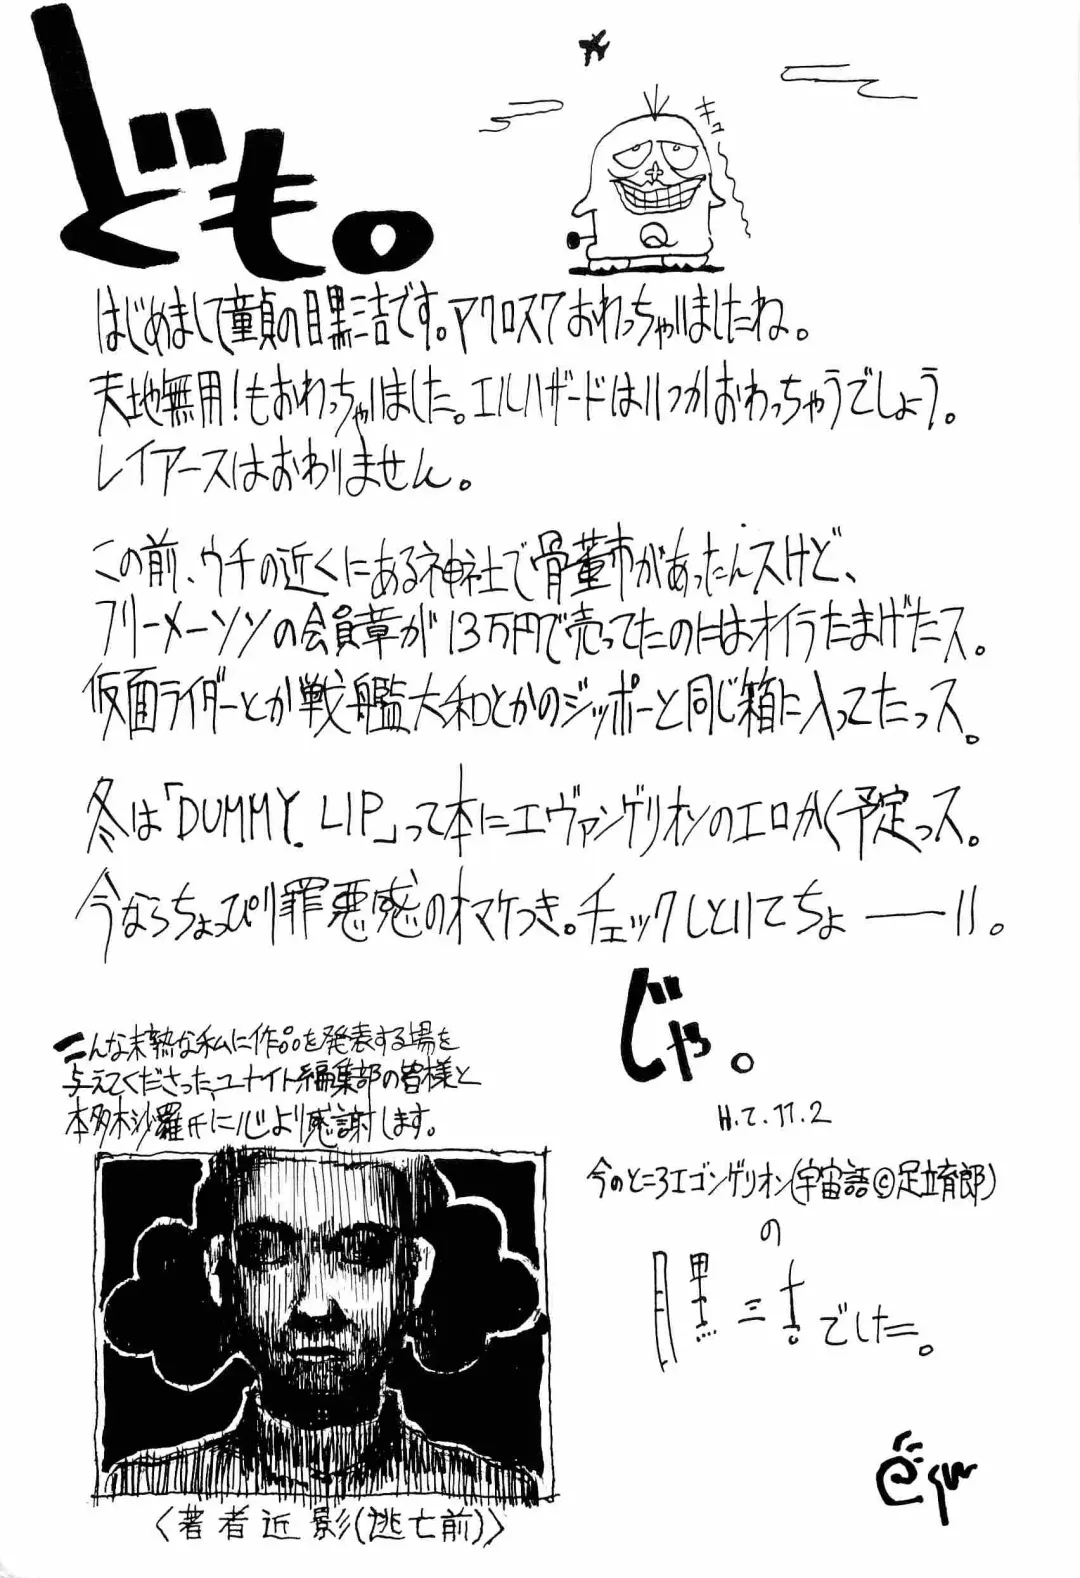 ども。
キュ
はじめまして童貞の目黒三吉です。マクロス7おわっちゃいましたね。
天地無用!もおわっちゃいました。エルハザードはいつかおわっちゃうでしょう。
レイアースはおわりません。
この前、ウチの近くにある神社で骨董市があったんスけど、
フリーメーソンの会員章が13万円で売ってたのにはオイラたまげたス。
仮面ライダーとか戦艦大和とかのジッポーと同じ箱に入ってたっス。
冬は「DUMMY. LIP」って本にエヴァンゲリオンのエロかく予定っス。
今ならちょっぴり罪悪感のオマケつき。チェックしといてちょーーいい。
じゃ。
こんな未熟な私に作品を発表する場を
与えてくださった、ユナイト編集部の皆様と
本多木沙羅氏に心より感謝します。
H.7.11.2
今のところエゴンゲリオン(宇宙語©足立育郎)
の
目黒三吉でした。
〈著者近影(逃亡前)〉